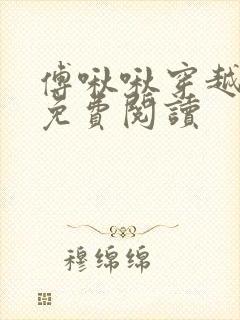 傅啾啾穿越
免費閱讀
穆绵绵